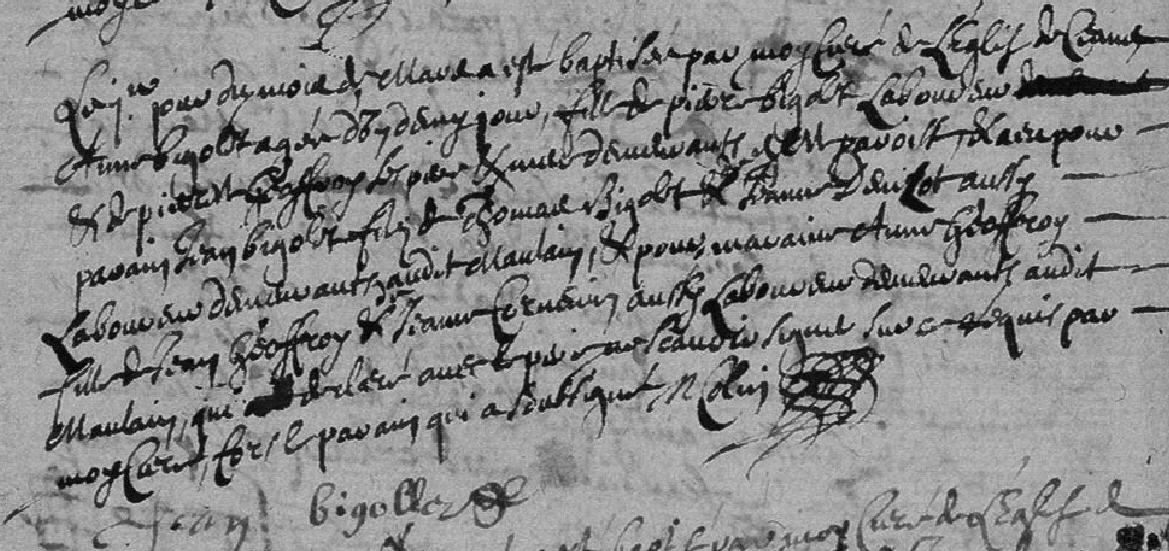 moy
Le jour du mois de Mars a esté baptisée par moy Curé de L'Eglise de Ceans
Anne bigolet agée d'un demy jour, fille de pierre bigolet Laboureur
& de pierrette Geoffroy ses pere & mere demeurants en cette paroisse, & a eu pour
parain Jean bigolet fils de Thomas Bigolet & Jeanne Denizot aussy
Laboureur demeurants audit Maulain, & pour maraine Anne Geoffroy
fille de Jean Geoffroy & Jeanne aussy Laboureur demeurants audit
Maulain, qui a declaré avec le pere ne scavoir signer sur ce requis par
moy Curé, fors le parain qui a soubsigné N Colin
Jean bigollet
esté baptisé par moy Curé de L'Eglise de